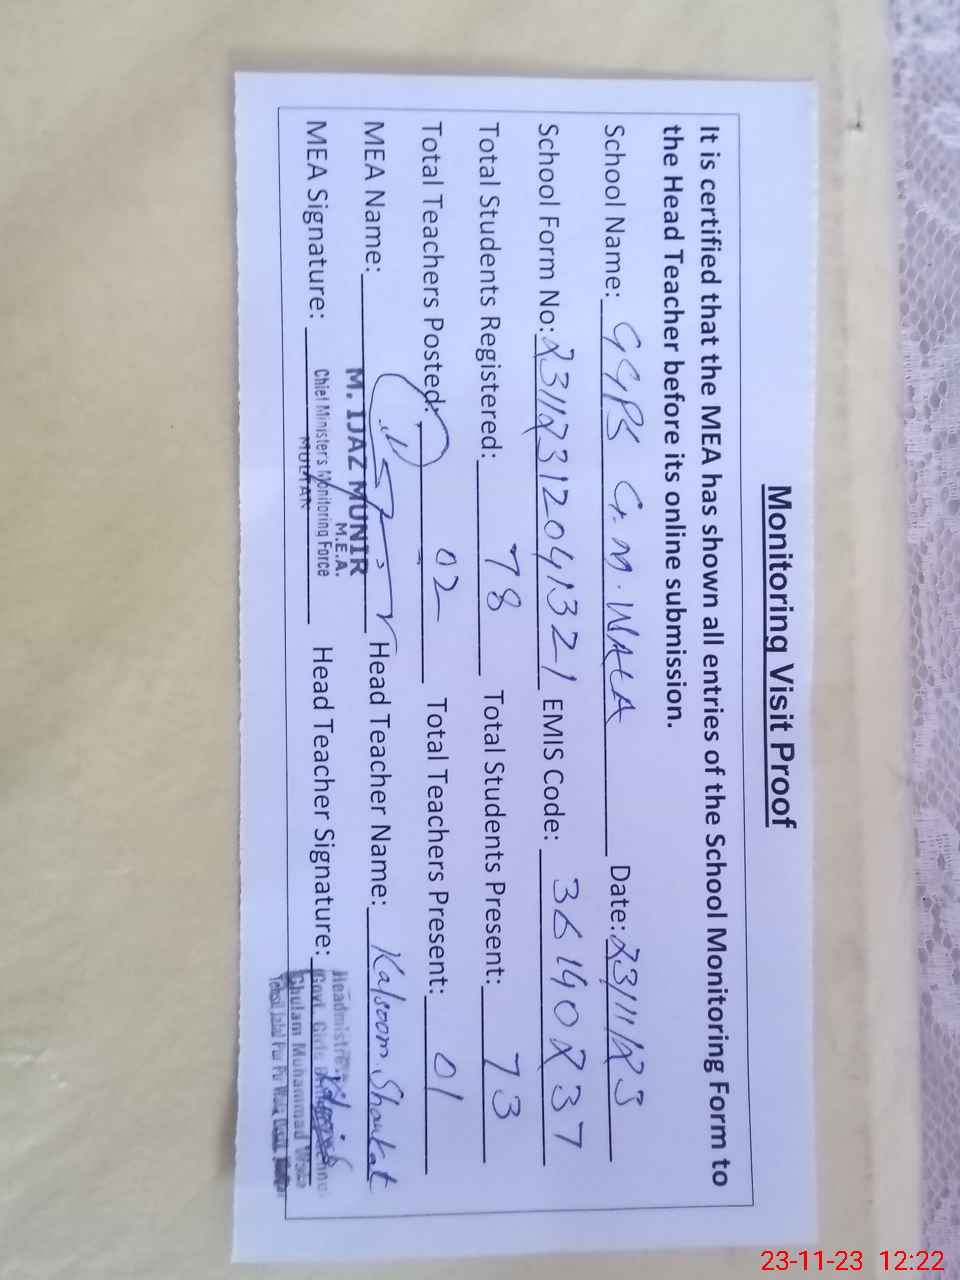 Monitoring Visit Proof
It is certified that the MEA has shown all entries of the School Monitoring Form to
the Head Teacher before its online submission.
School Name: GGPS G.M. WALA Date: 23/11/23
School Form No: 23112312041321 EMIS Code: 36140237
Total Students Registered: 78 Total Students Present: 73
Total Teachers Posted: 02 Total Teachers Present: 01
MEA Name: Head Teacher Name: Kalsoom Shoukat
M. IJAZ MUNIR
M.E.A.
Chief Minister's Monitoring Force
MULTAN
MEA Signature: Head Teacher Signature:
Headmistress
Govt. Girls
Ghulam Muhammad Wala
23-11-23 12:22